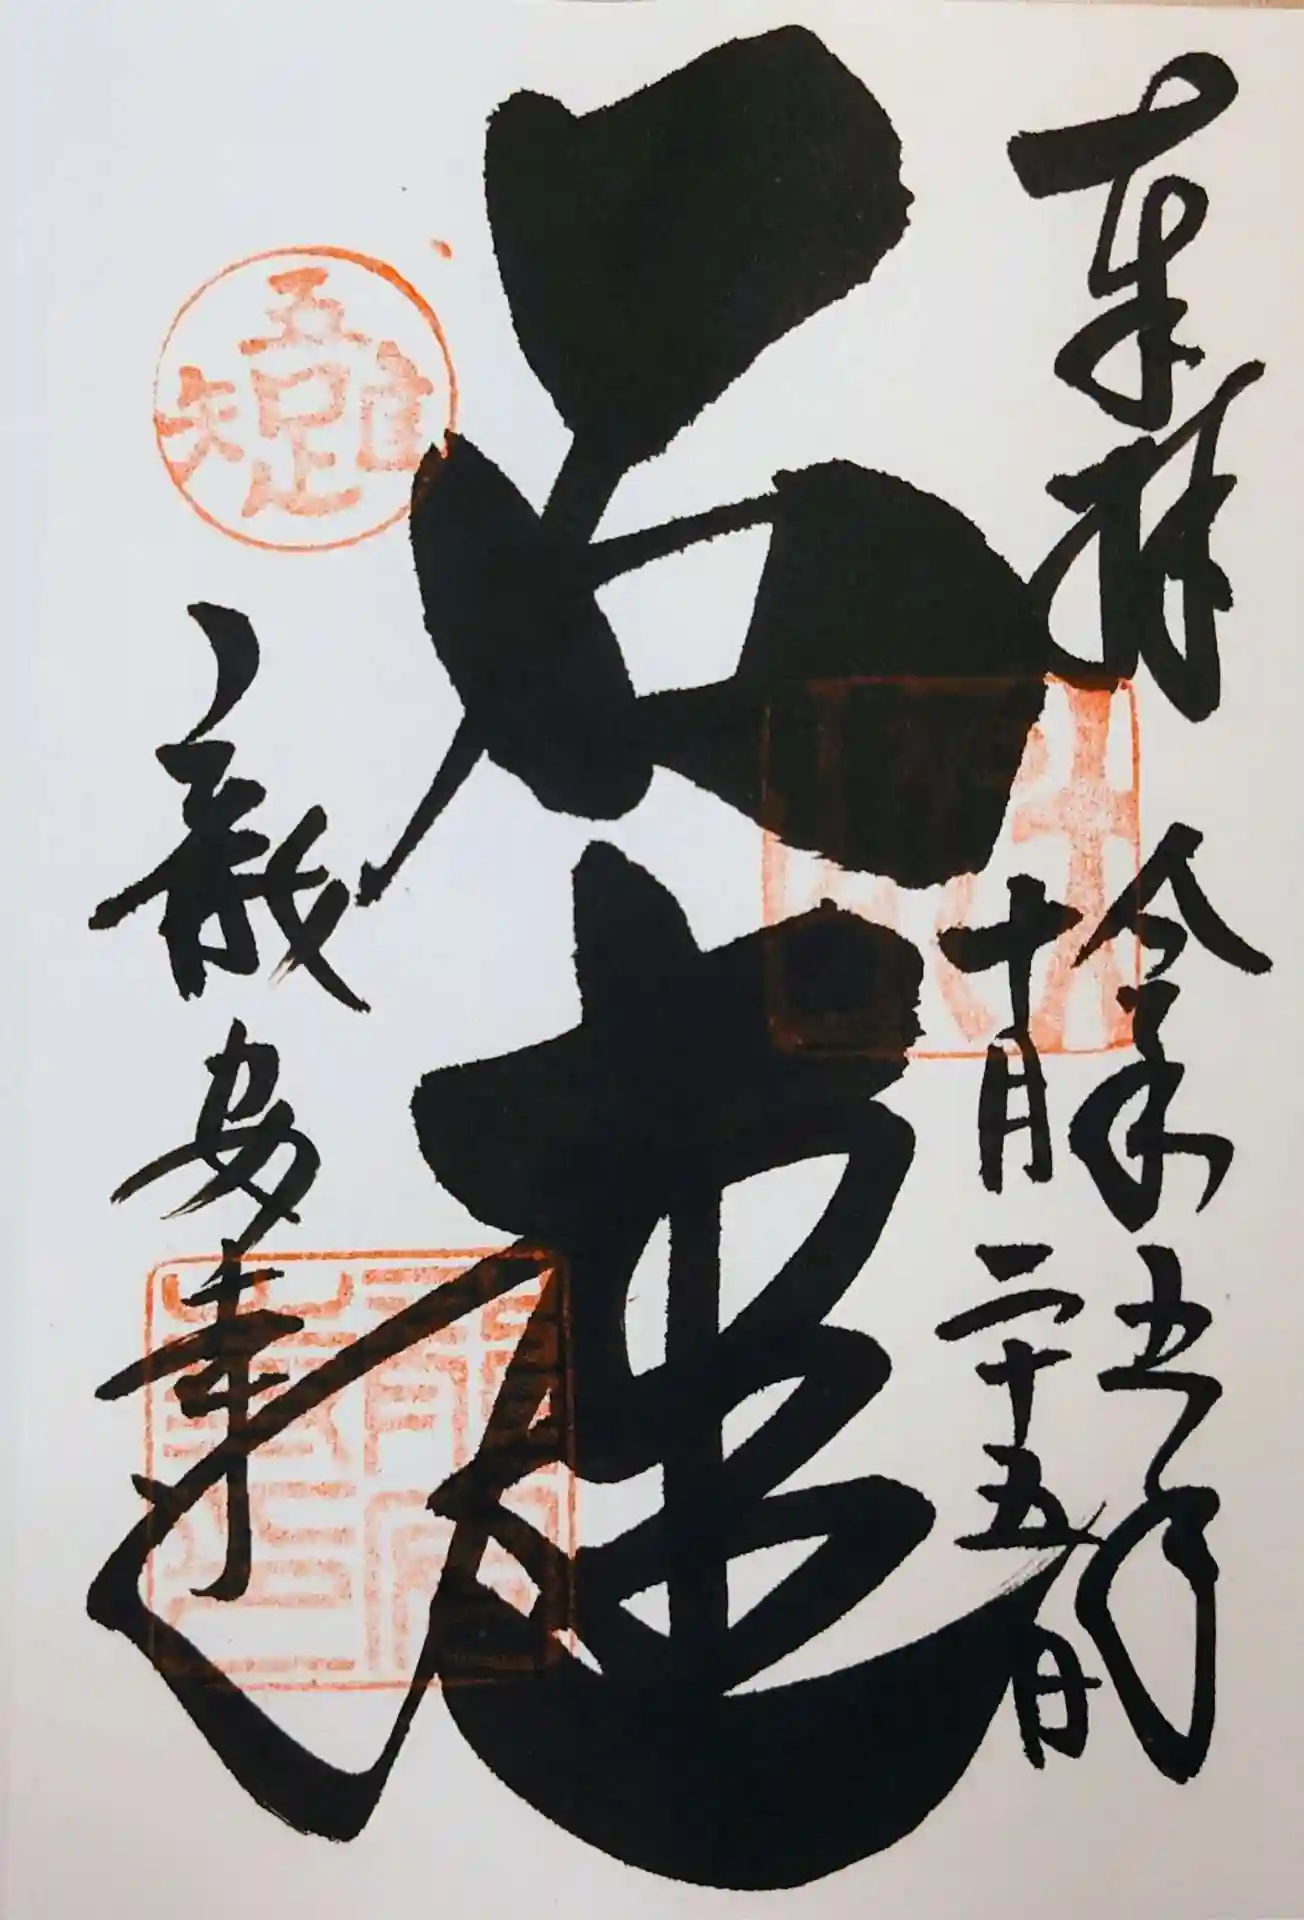 奉拝
令和五年
十月二十五日
石庭
龍安寺
吾唯足知